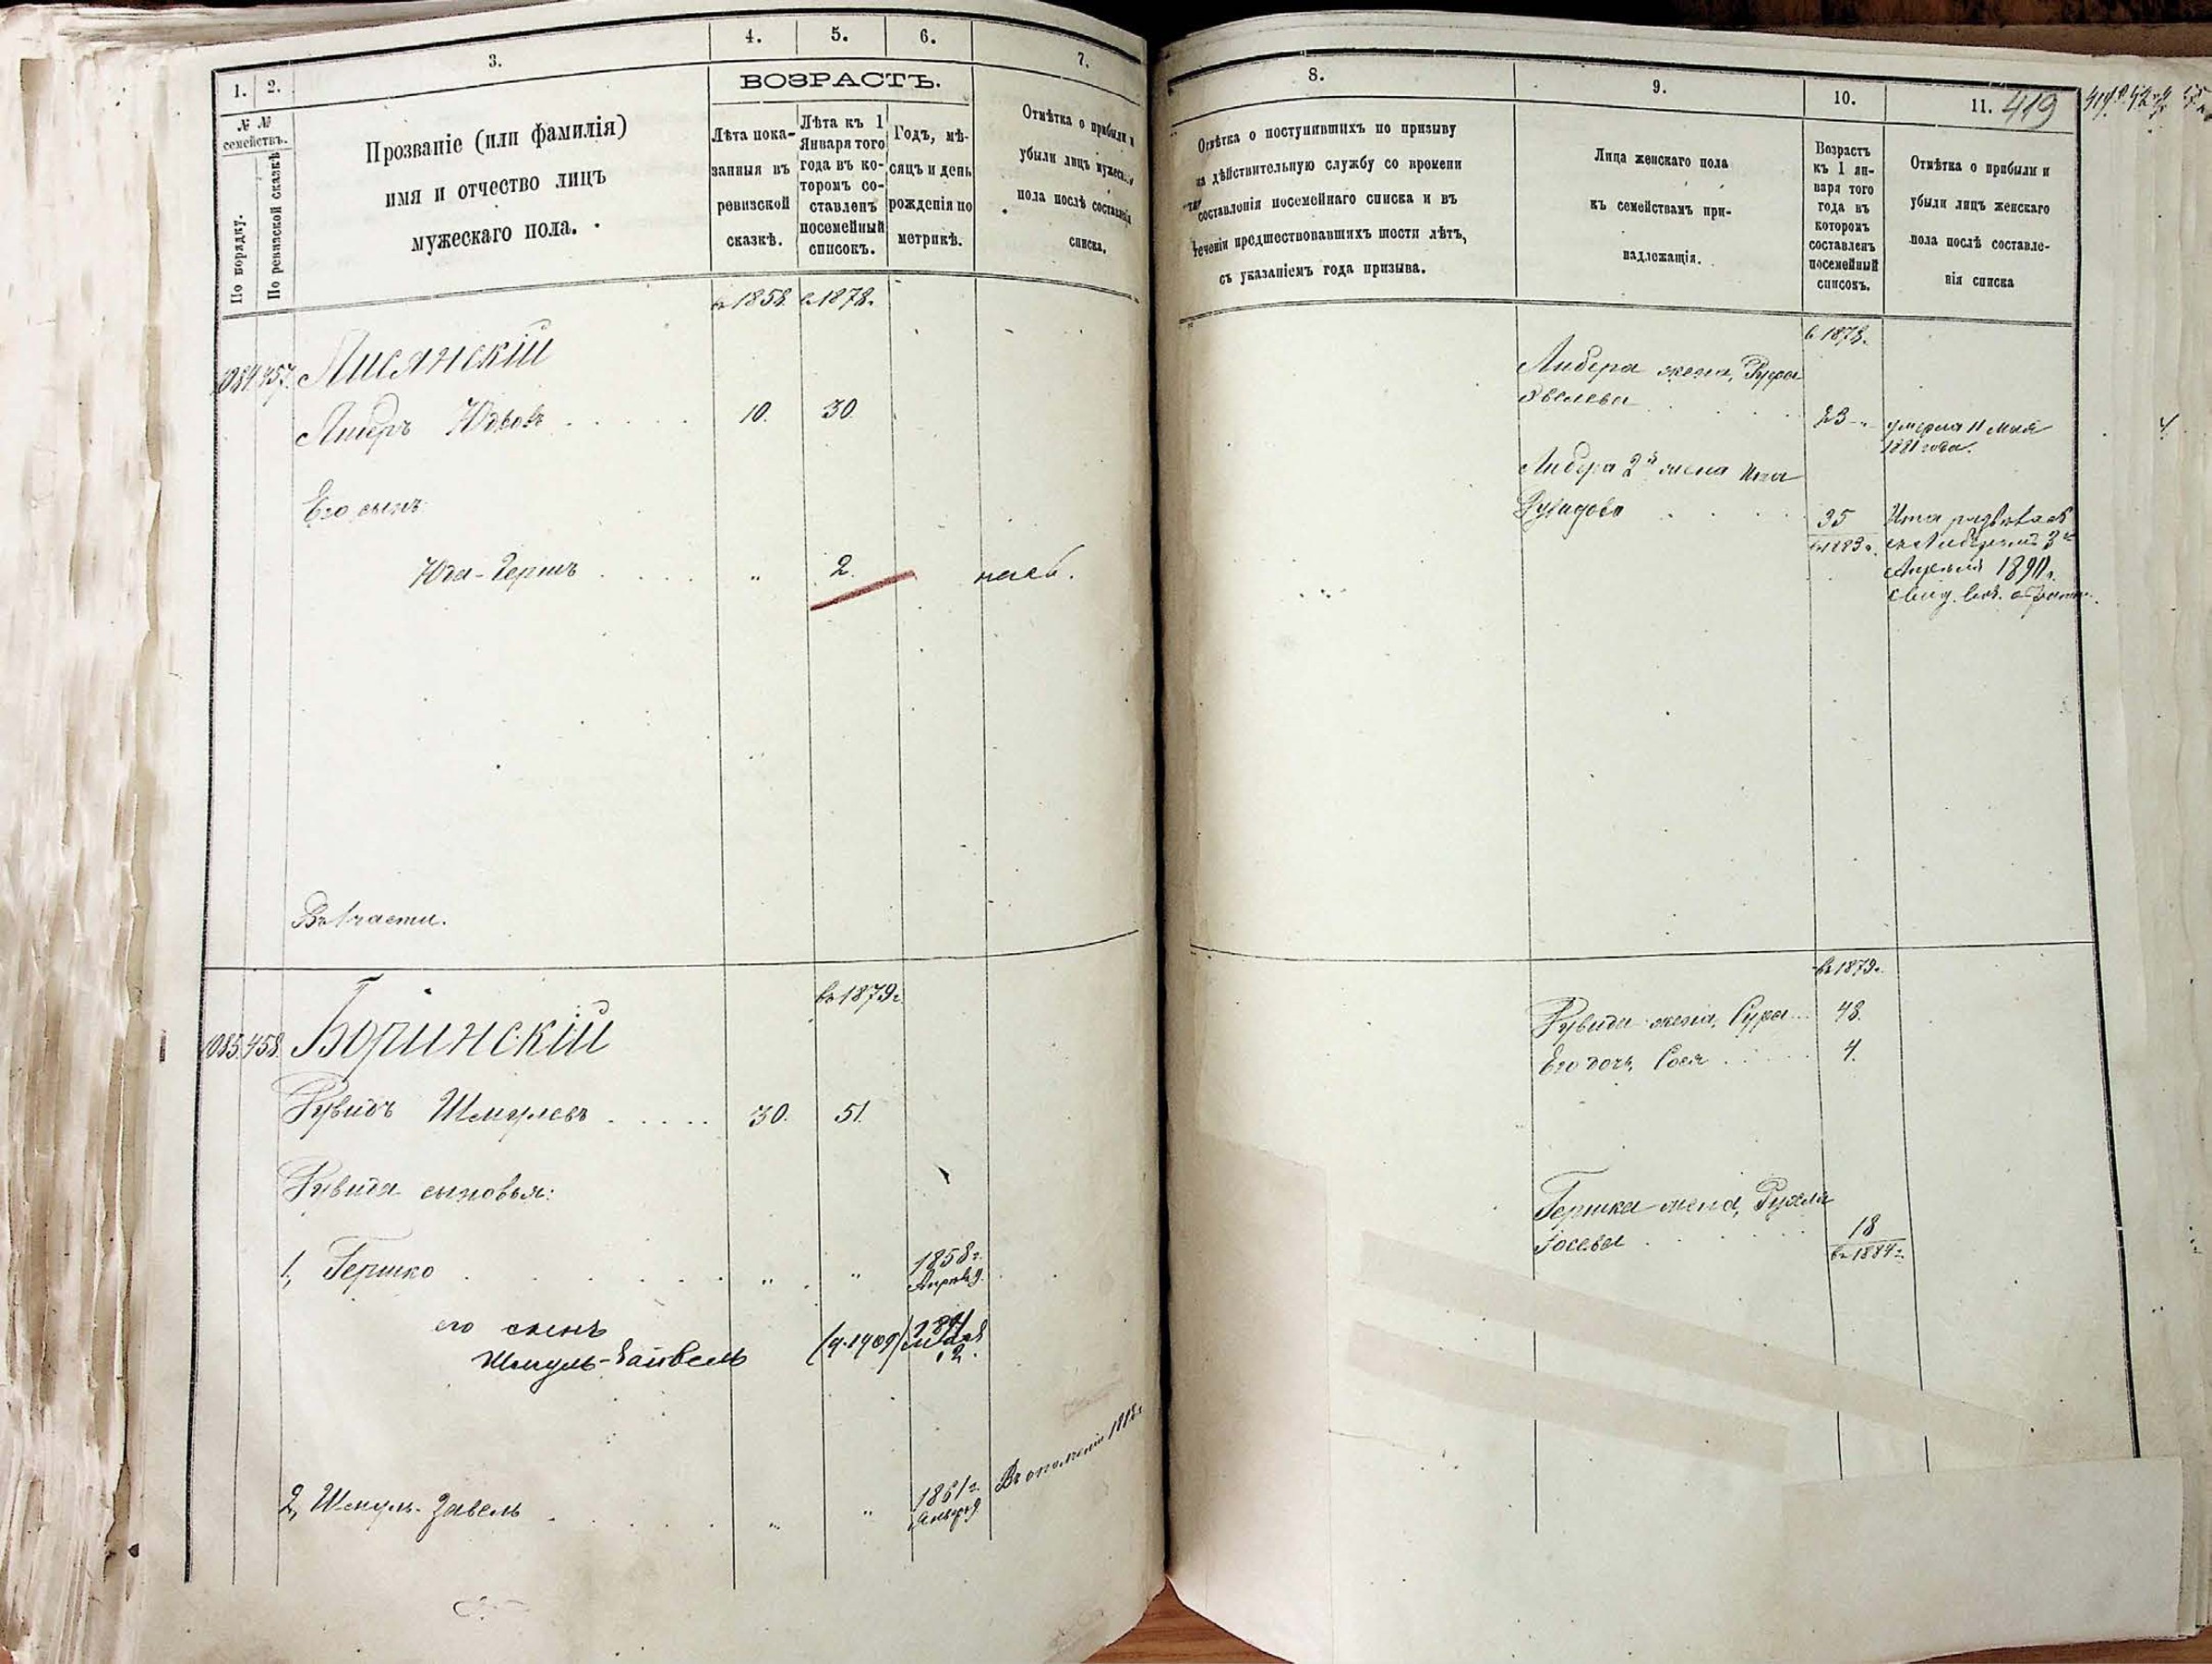 1. 2. 3. 4. 5. 6. 7.
№ №
семействъ.
По порядку.
По ревизской сказкѣ
Прозваніе (или фамилія)
имя и отчество лицъ
мужескаго пола.
ВОЗРАСТЪ.
Лѣта пока-
занныя въ
ревизской
сказкѣ.
Лѣта къ 1
Января того
года въ ко-
торомъ со-
ставленъ
посемейный
списокъ.
Годъ, мѣ-
сяцъ и день
рожденія по
метрикѣ.
Отмѣтка о прибыли и
убыли лицъ мужескаго
пола послѣ составленія
списка.
в 1858. в 1878.
1084. 457. Лисянскій
Либеръ Юдковъ 10. 30.
Его сынъ:
Юда-Гершъ „ 2.
Въ 1 части.
въ 1879 г
1085. 458. Боринскій
Рувидъ Шмулевъ 30. 51.
Рувида сыновья:
1, Гершко „ „ 1858 г.
Апрѣль 9.
его сынъ
Шмуль-Файвель (ч. 1909)
2, Шмуль-Завель „ „ 1861 г.
Январь 9
8. 9. 10. 11. 419
Отмѣтка о поступившихъ по призыву
на дѣйствительную службу со времени
составленія посемейнаго списка и въ
теченіи предшествовавшихъ шести лѣтъ,
съ указаніемъ года призыва.
Лица женскаго пола
къ семействамъ при-
надлежащія.
Возрастъ
къ 1 ян-
варя того
года въ
которомъ
составленъ
посемейный
списокъ.
Отмѣтка о прибыли и
убыли лицъ женскаго
пола послѣ составле-
нія списка
в 1878.
Либера жена,
23 умерла 11 Мая
1881 года.
Либера 2я жена Ита
35 Ита
в 1883 г. съ Либеромъ 3го
Апрѣля 1890 г.
въ 1879.
Рувида жена, Сура 48.
Его дочь, Сося 4.
Гершка жена, Рухля
Іосева 18
въ 1884 г.